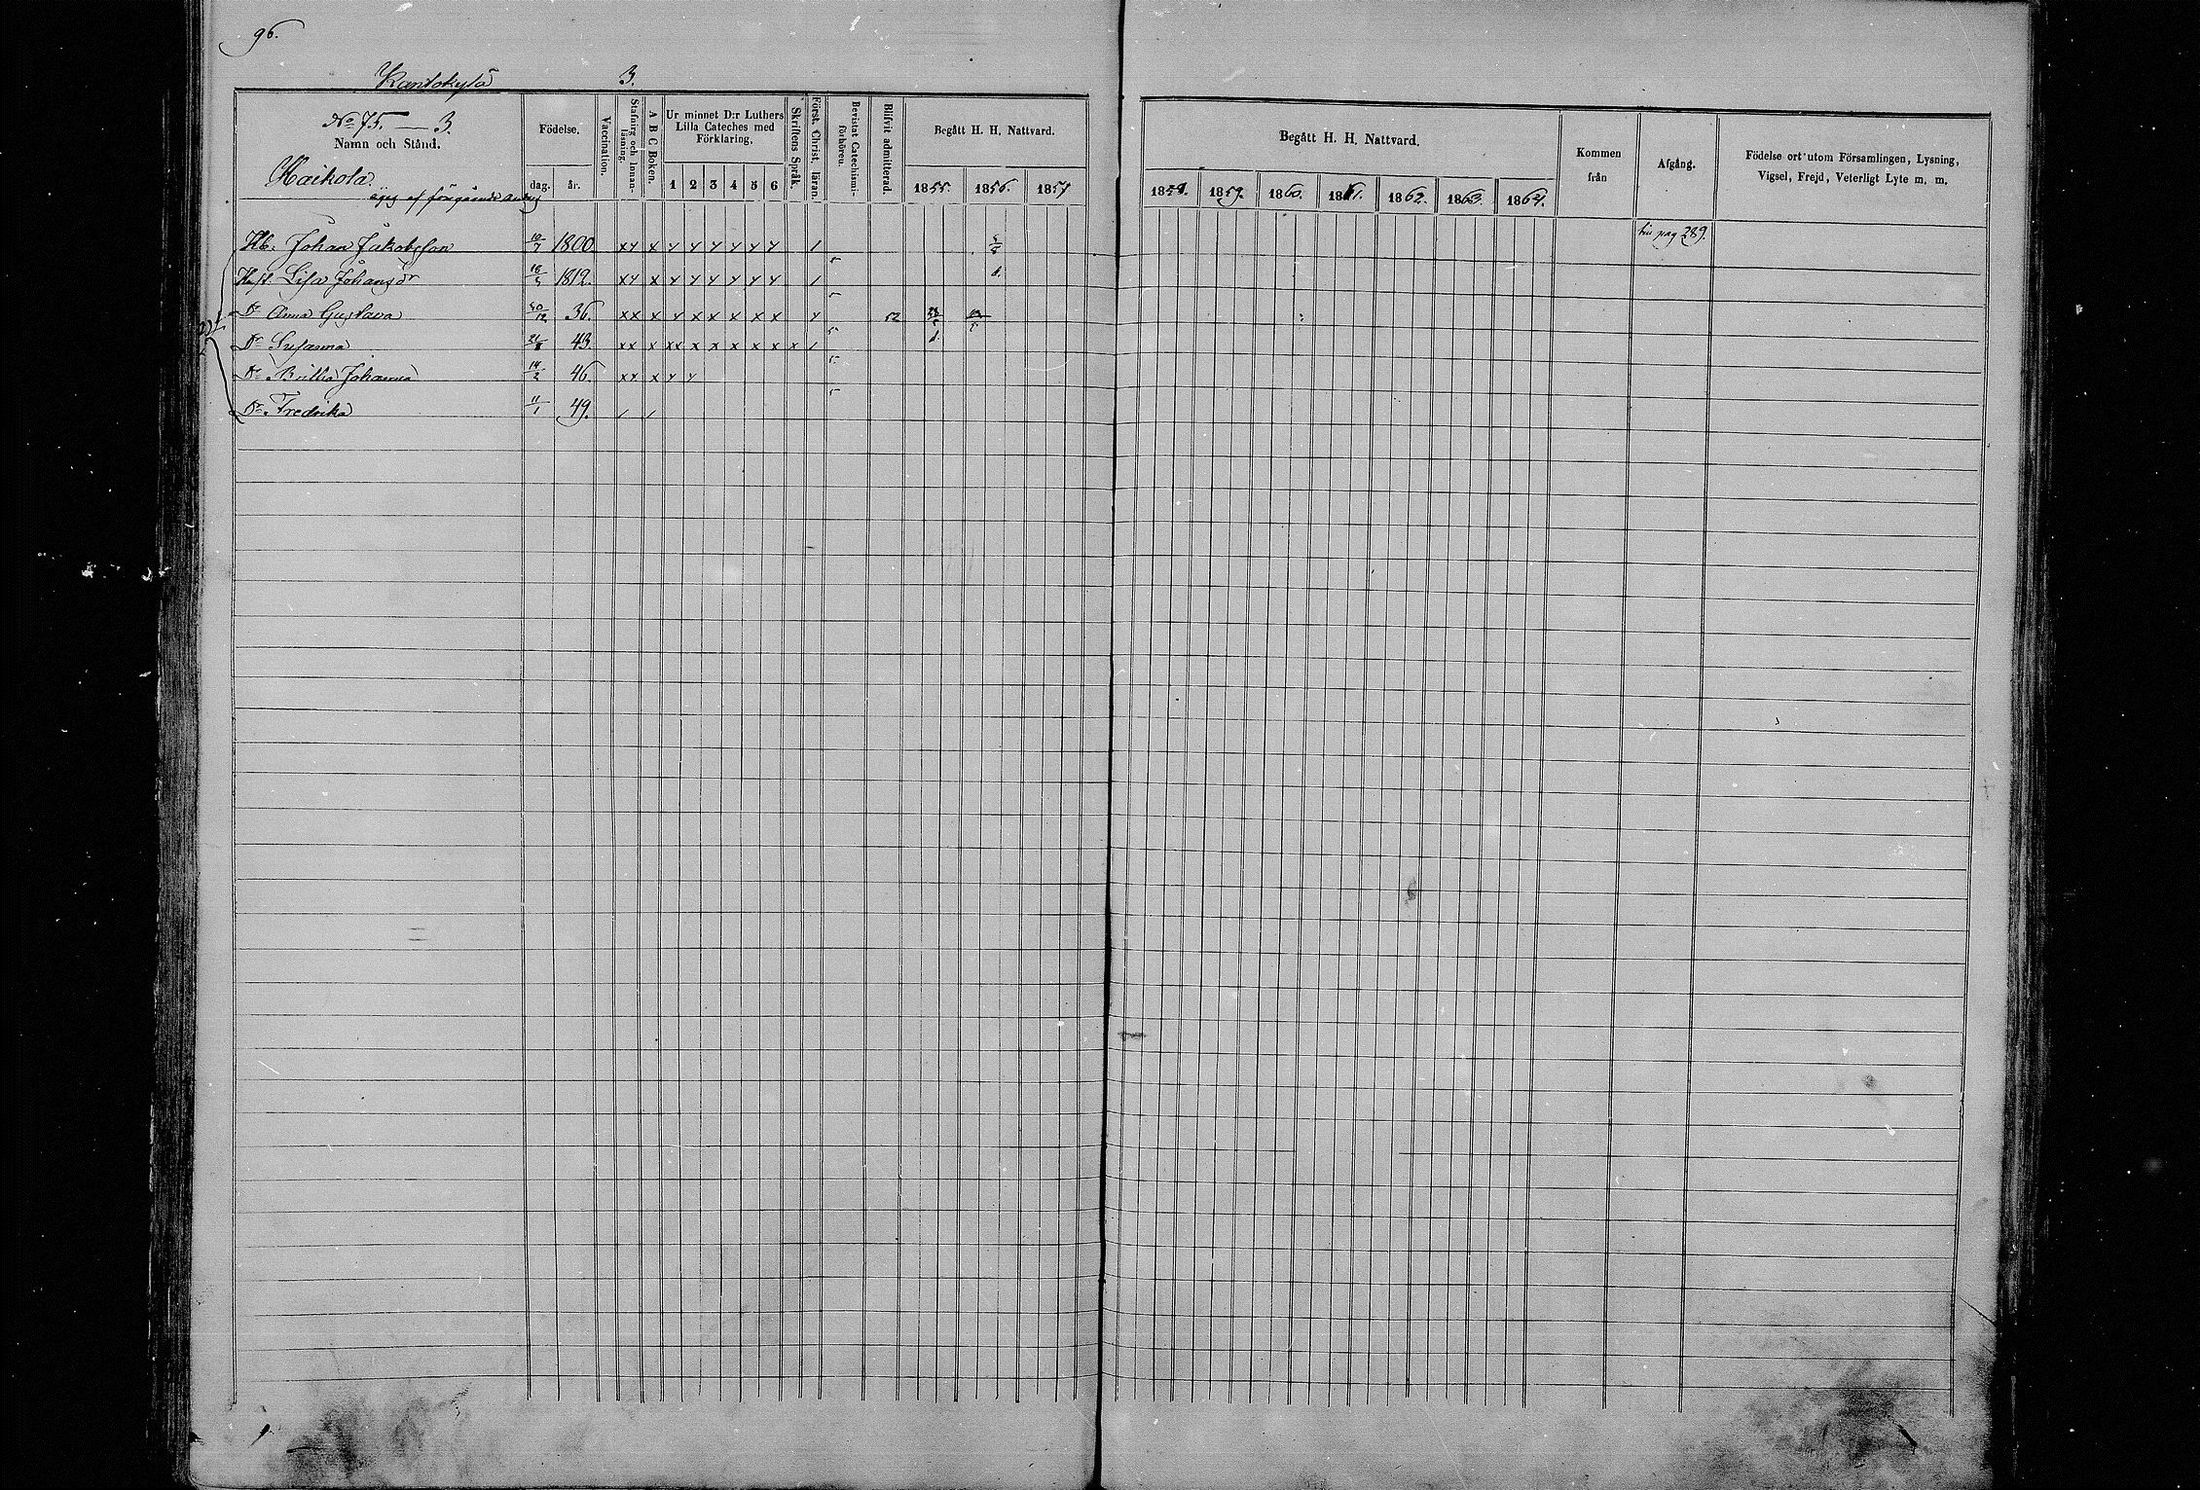 96.
Kantokylä 3.
No 75. — 3.
Namn och Stånd.
Födelse.
dag. år.
Vaccination.
Stafning och Innan-läsning.
A B C Boken.
Ur minnet D:r Luthers Lilla Cateches med Förklaring.
1 2 3 4 5 6
Skriftens Språk.
Först. Christ. läran.
Bevistat Catechismi-Förhören.
Blifvit admitterad.
Begått H. H. Nattvard.
1855. 1856. 1857
Begått H. H. Nattvard.
1858. 1859. 1860. 1861. 1862. 1863. 1864.
Kommen från
Afgång.
Födelse ort utom Församlingen, Lysning, Vigsel, Frejd, Veterligt Lyte m. m.
Haikola.
äges af föregående
Hb. Johan Jakobsson 10/7 1800 xy x y y y y y y 1 pag 289.
Hust. Lisa Johansdr 1812. xy x y y y y y y 1
Dr Anna Gustava 36. xx x y x x x x x y 52
Dr Susanna 43. xx x xx x x x x x x 1
Dr Britha Johanna 14/2 46. xy x y y
Dr Fredrika 11/1 49.